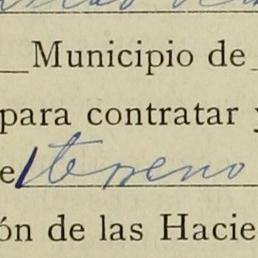 Municipio de
para contratar y
el terreno
ón de las Hacie